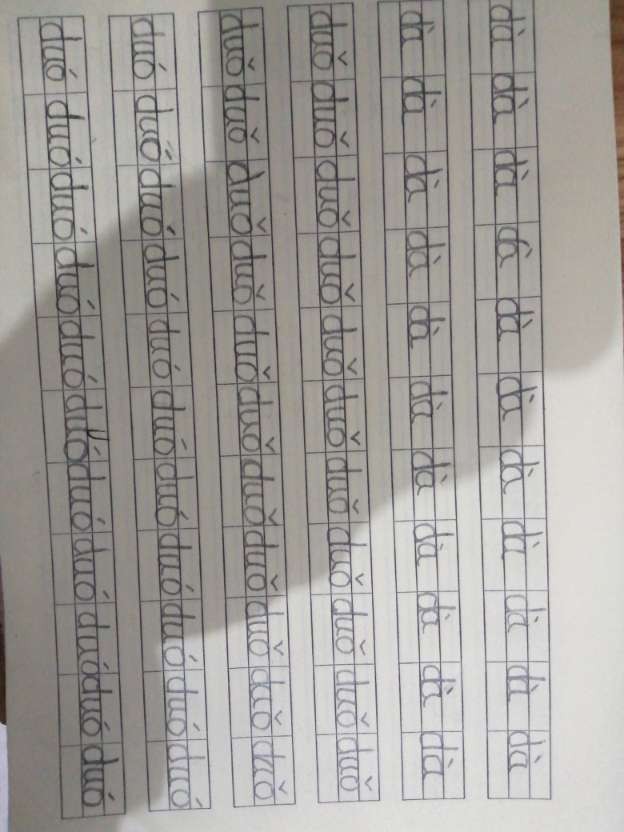 dà dà dà dà dà dà dà dà dà dà dà
dà dà dà dà dà dà dà dà dà dà dà
duǒ duǒ duǒ duǒ duǒ duǒ duǒ duǒ duǒ duǒ duǒ
duǒ duǒ duǒ duǒ duǒ duǒ duǒ duǒ duǒ duǒ duǒ
duó duó duó duó duó duó duó duó duó duó duó
duó duó duó duó duó duó duó duó duó duó duó